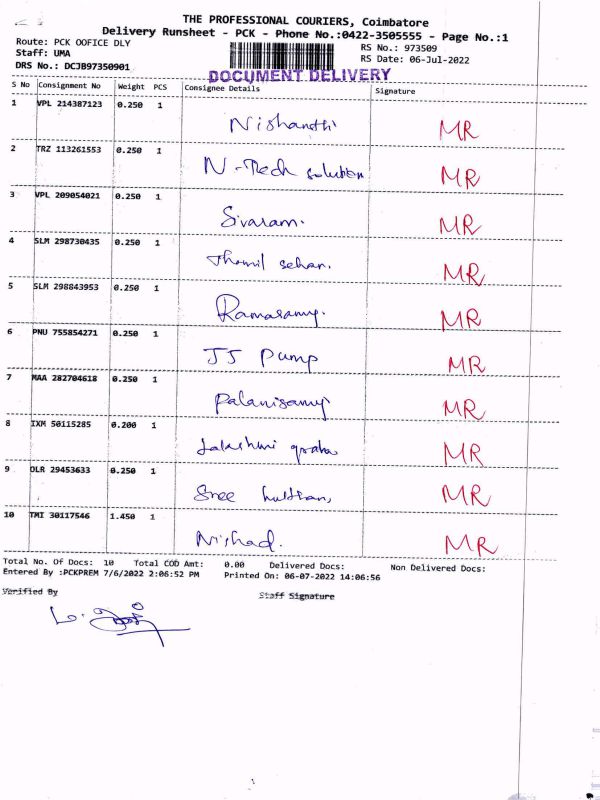 THE PROFESSIONAL COURIERS, Coimbatore
Delivery Runsheet - PCK - Phone No.:0422-3505555 - Page No.:1
Route: PCK OOFICE DLY
RS No.: 973509
Staff: UMA
RS Date: 06-Jul-2022
DRS No.: DCJB97350901
DOCUMENT DELIVERY
S No Consignment No Weight PCS Consignee Details Signature
1 VPL 214387123 0.250 1
Nishanthi MR
2 TRZ 113261553 0.250 1
N-Tech solution MR
3 VPL 209054021 0.250 1
Sivaram. MR
4 SLM 298730435 0.250 1
MR
5 SLM 298843953 0.250 1
Ramasamy. MR
6 PNU 755854271 0.250 1
JJ Pump MR
7 MAA 282704618 0.250 1
Palanisamy MR
8 IXM 50115285 0.200 1
MR
9 DLR 29453633 0.250 1
Sree MR
10 TMI 30117546 1.450 1
Nishad. MR
Total No. Of Docs: 10 Total COD Amt: 0.00 Delivered Docs: Non Delivered Docs:
Entered By :PCKPREM 7/6/2022 2:06:52 PM Printed On: 06-07-2022 14:06:56
Verified By Staff Signature